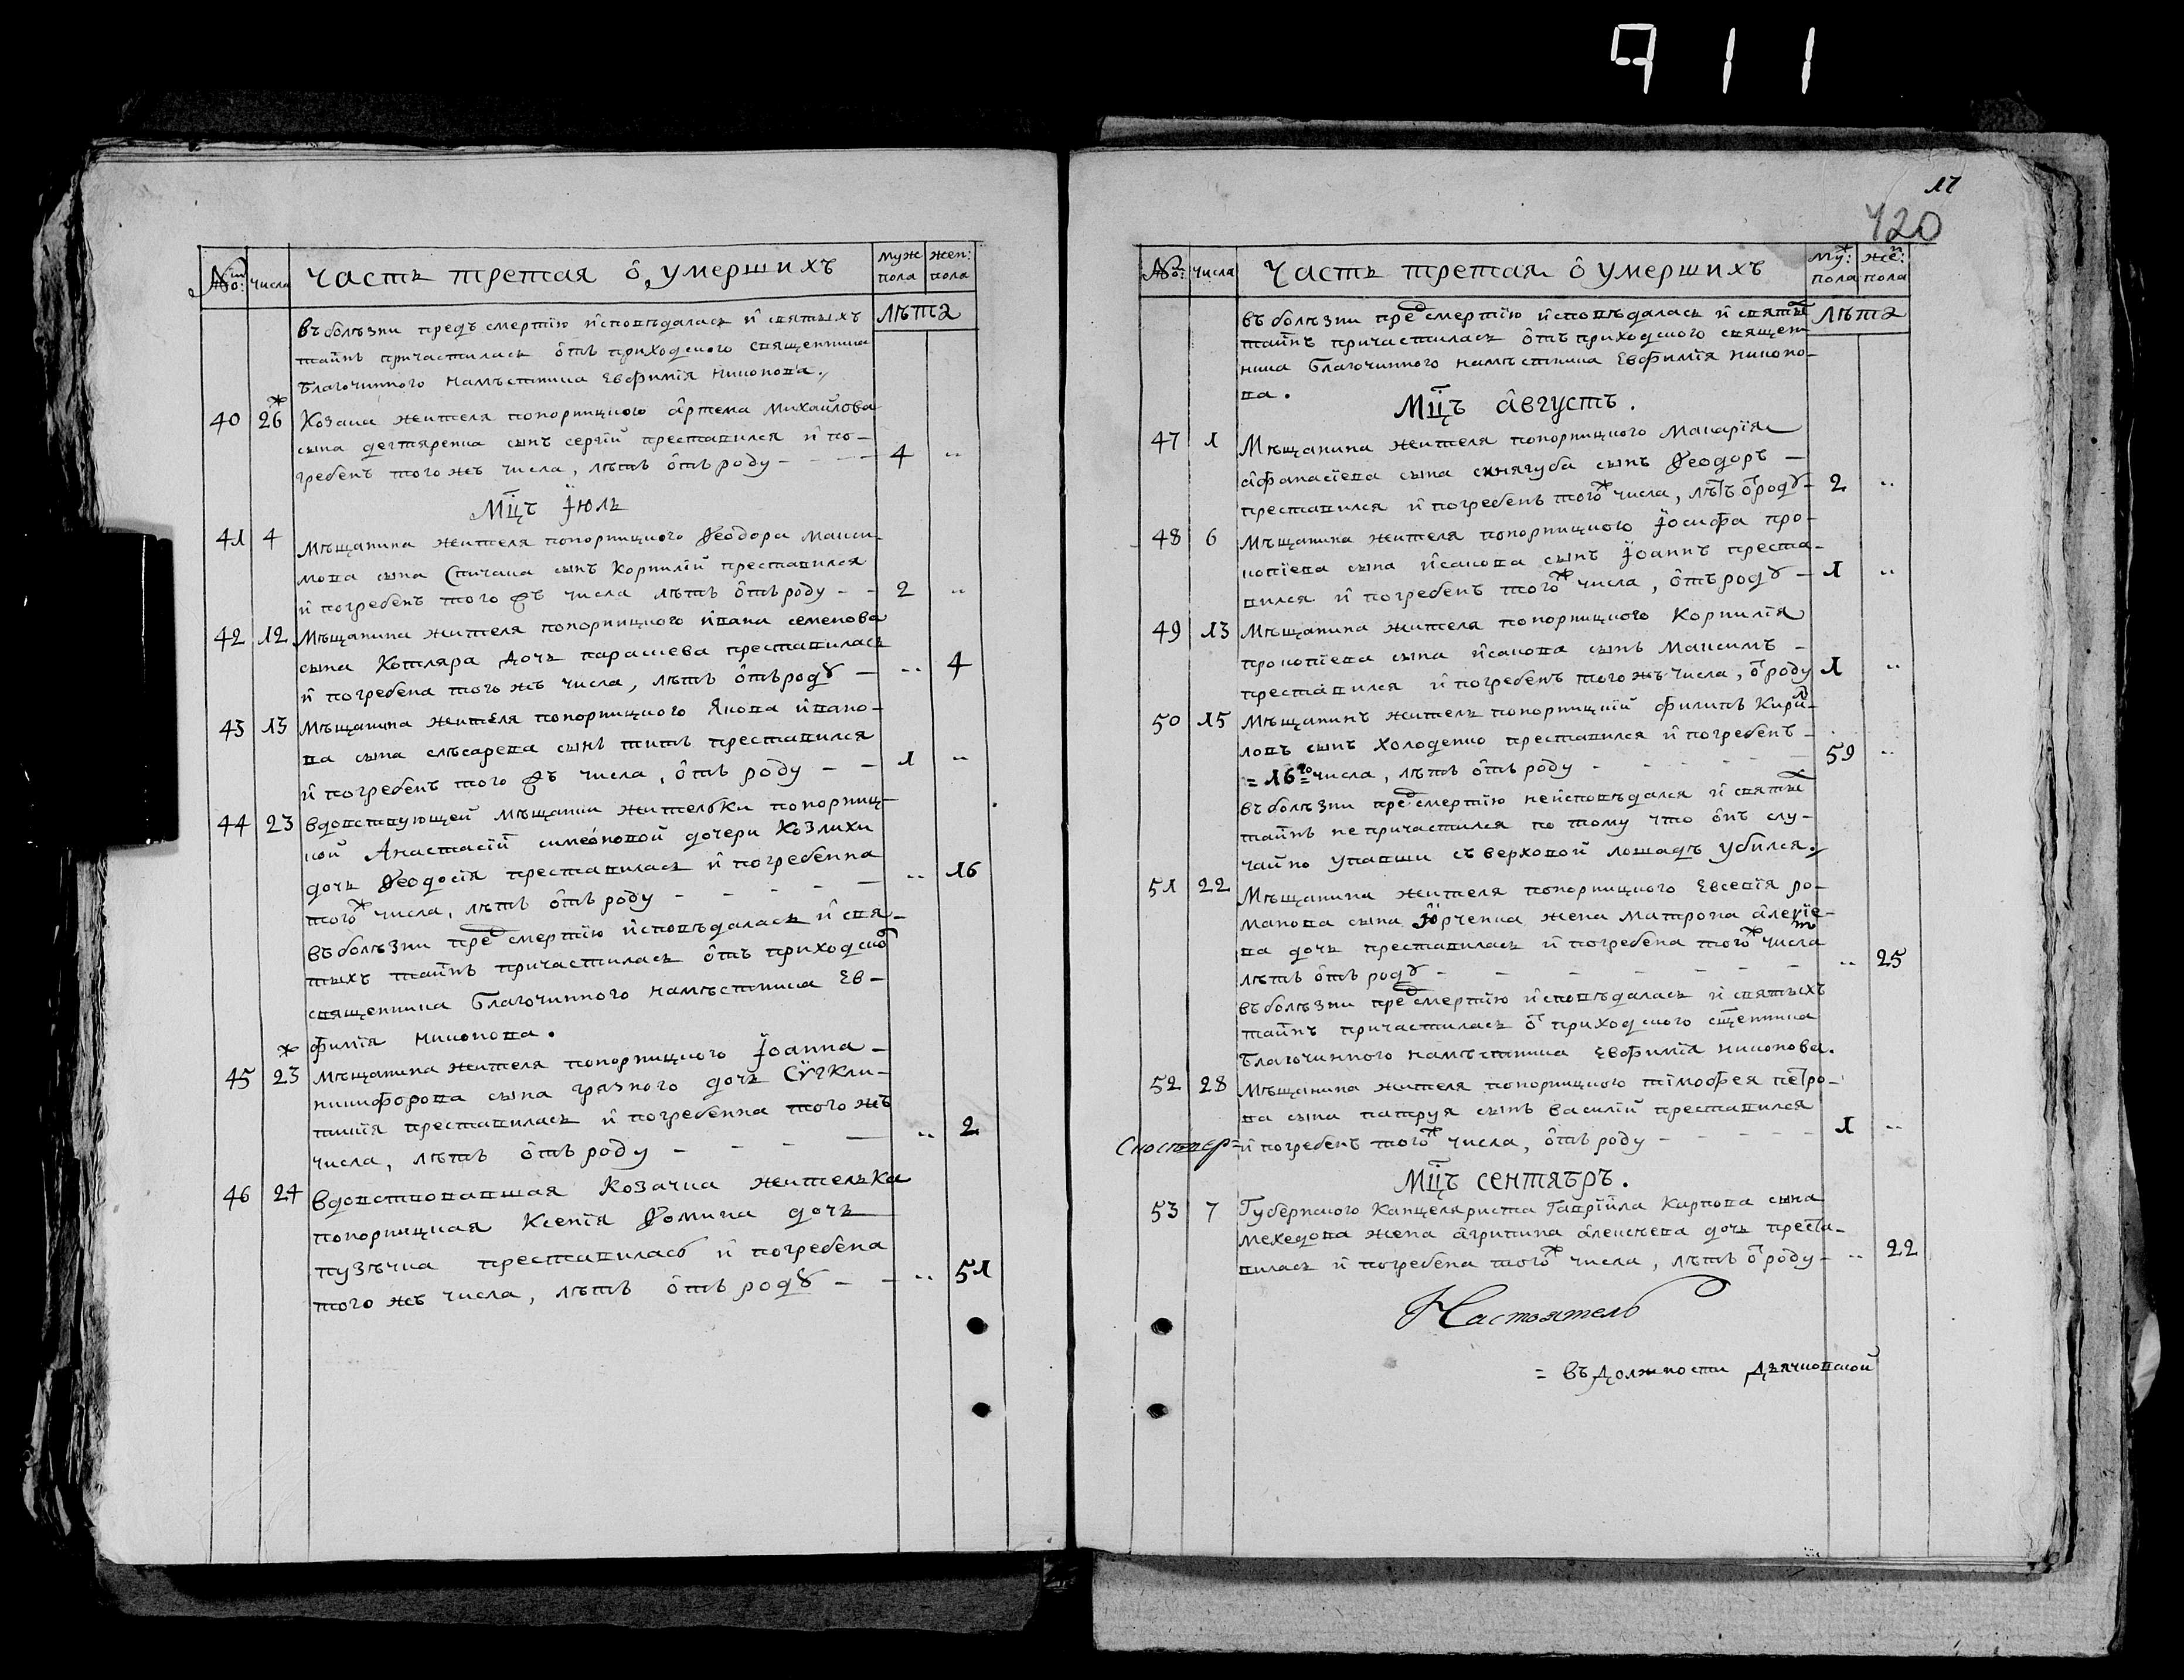 911
№: числа Часть третая ô, умершихъ муж пола жен: пола
лѣта
въ болѣзни предъ смертїю исповѣдалась и святыхъ
таинъ причастилась ôтъ приходского священника
благочинного намѣстника Евфимїя Никонова.
40 26 Козака жителя понорницкого Артема Михайлова
сына дегтяренка сынъ сергїй преставился и по-
гребенъ того жъ числа, лѣтъ ôтъ роду - - - 4 ..
Мцъ Їюль
41 4 Мѣщанина жителя понорницкого Ѳеодора Макси-
мова сына Спичака сынъ Корнилїй преставился
и погребенъ того жъ числа лѣтъ ôтъ роду - - 2 ..
42 12 Мѣщанина жителя понорницкого ивана семенова
сына Котляра дочь параскева преставилась
и погребена того жъ числа, лѣтъ ôтъ родꙋ - .. 4
43 13 Мѣщанина жителя понорницкого Якова ивано-
ва сына слѣсарева сынъ титъ преставился
и погребенъ того жъ числа, ôтъ роду - - 1 ..
44 23 вдовствующей мѣщанки жительки понорниц-
кой Анастасїи симеоновой дочери Козлихи
дочь Ѳеодосїя преставилась и погребенна
того ж числа, лѣтъ ôтъ роду - - - - - .. 16
въ болѣзни пред смертїю исповѣдалась и свя-
тыхъ таинъ причастилась ôтъ приходского
священника благочинного намѣстника Ев-
фимїя Никонова.
45 23 Мѣщанина жителя понорницкого Їоанна
никифорова сына грязного дочь Сѵгкли-
тикїя преставилась и погребенна того жъ
числа, лѣтъ ôтъ роду - - - - .. 2
46 24 вдовствовавшая Козачка жителька
понорницкая Ксенїя Ѳомина дочь
пузѣчка преставилась и погребена
того жъ числа, лѣтъ ôтъ родꙋ - - .. 51
17
420
№: числа Часть третая ô умершихъ муж: пола жен: пола
лѣта
въ болѣзни пред смертїю исповѣдалась и святых
таинъ причастилась ôтъ приходского священ-
ника благочинного намѣстника Евфимїя Никоно-
ва.
Мцъ Августъ.
47 1 Мѣщанина жителя понорницкого Макарїя
Афанасїева сына синягуба сынъ Ѳеодоръ -
преставился и погребенъ того ж числа, лѣтъ ôт родꙋ - 2 ..
48 6 Мѣщанина жителя понорницкого Їосифа про-
копїева сына исакова сынъ Їоаннъ преста-
вился и погребенъ того ж числа, ôтъ родꙋ - 1 ..
49 13 Мѣщанина жителя понорницкого Корнилїя
прокопїева сына исакова сынъ Максимъ -
преставился и погребенъ того жъ числа, ôт роду 1 ..
50 15 Мѣщанинъ житель понорницкїй филипъ Кири-
ловъ сынъ Холоденко преставился и погребенъ -
= 16го числа, лѣтъ ôтъ роду - - - - - 59 ..
въ болѣзни пред смертїю неисповѣдался и святых
таинъ не причастился по тому что ôнъ слу-
чайно упавши съ верховой лошадѣ убился.
51 22 Мѣщанина жителя понорницкого Евсевїя ро-
манова сына Юрченка жена Матрона Алекѣе-
ва дочь преставилась и погребена того ж числа
лѣтъ ôтъ родꙋ - - - - - - - .. 25
въ болѣзни пред смертїю исповѣдалась и святыхъ
таинъ причастилась ôт приходского сщенника
благочинного намѣстника Евфимїя Никонова.
52 28 Мѣщанина жителя понорницкого тімофея петро-
ва сына патруя сынъ василїй преставился
и погребенъ того ж числа, ôтъ роду - - - - - 1 ..
Мцъ сентябръ.
53 7 Губернского Канцеляриста Гаврїила Карпова сына
мехедова жена Агрипина Алексѣева дочь преста-
вилась и погребена того ж числа, лѣтъ ôт роду - .. 22
Настоятель
= въ должности дьячковской